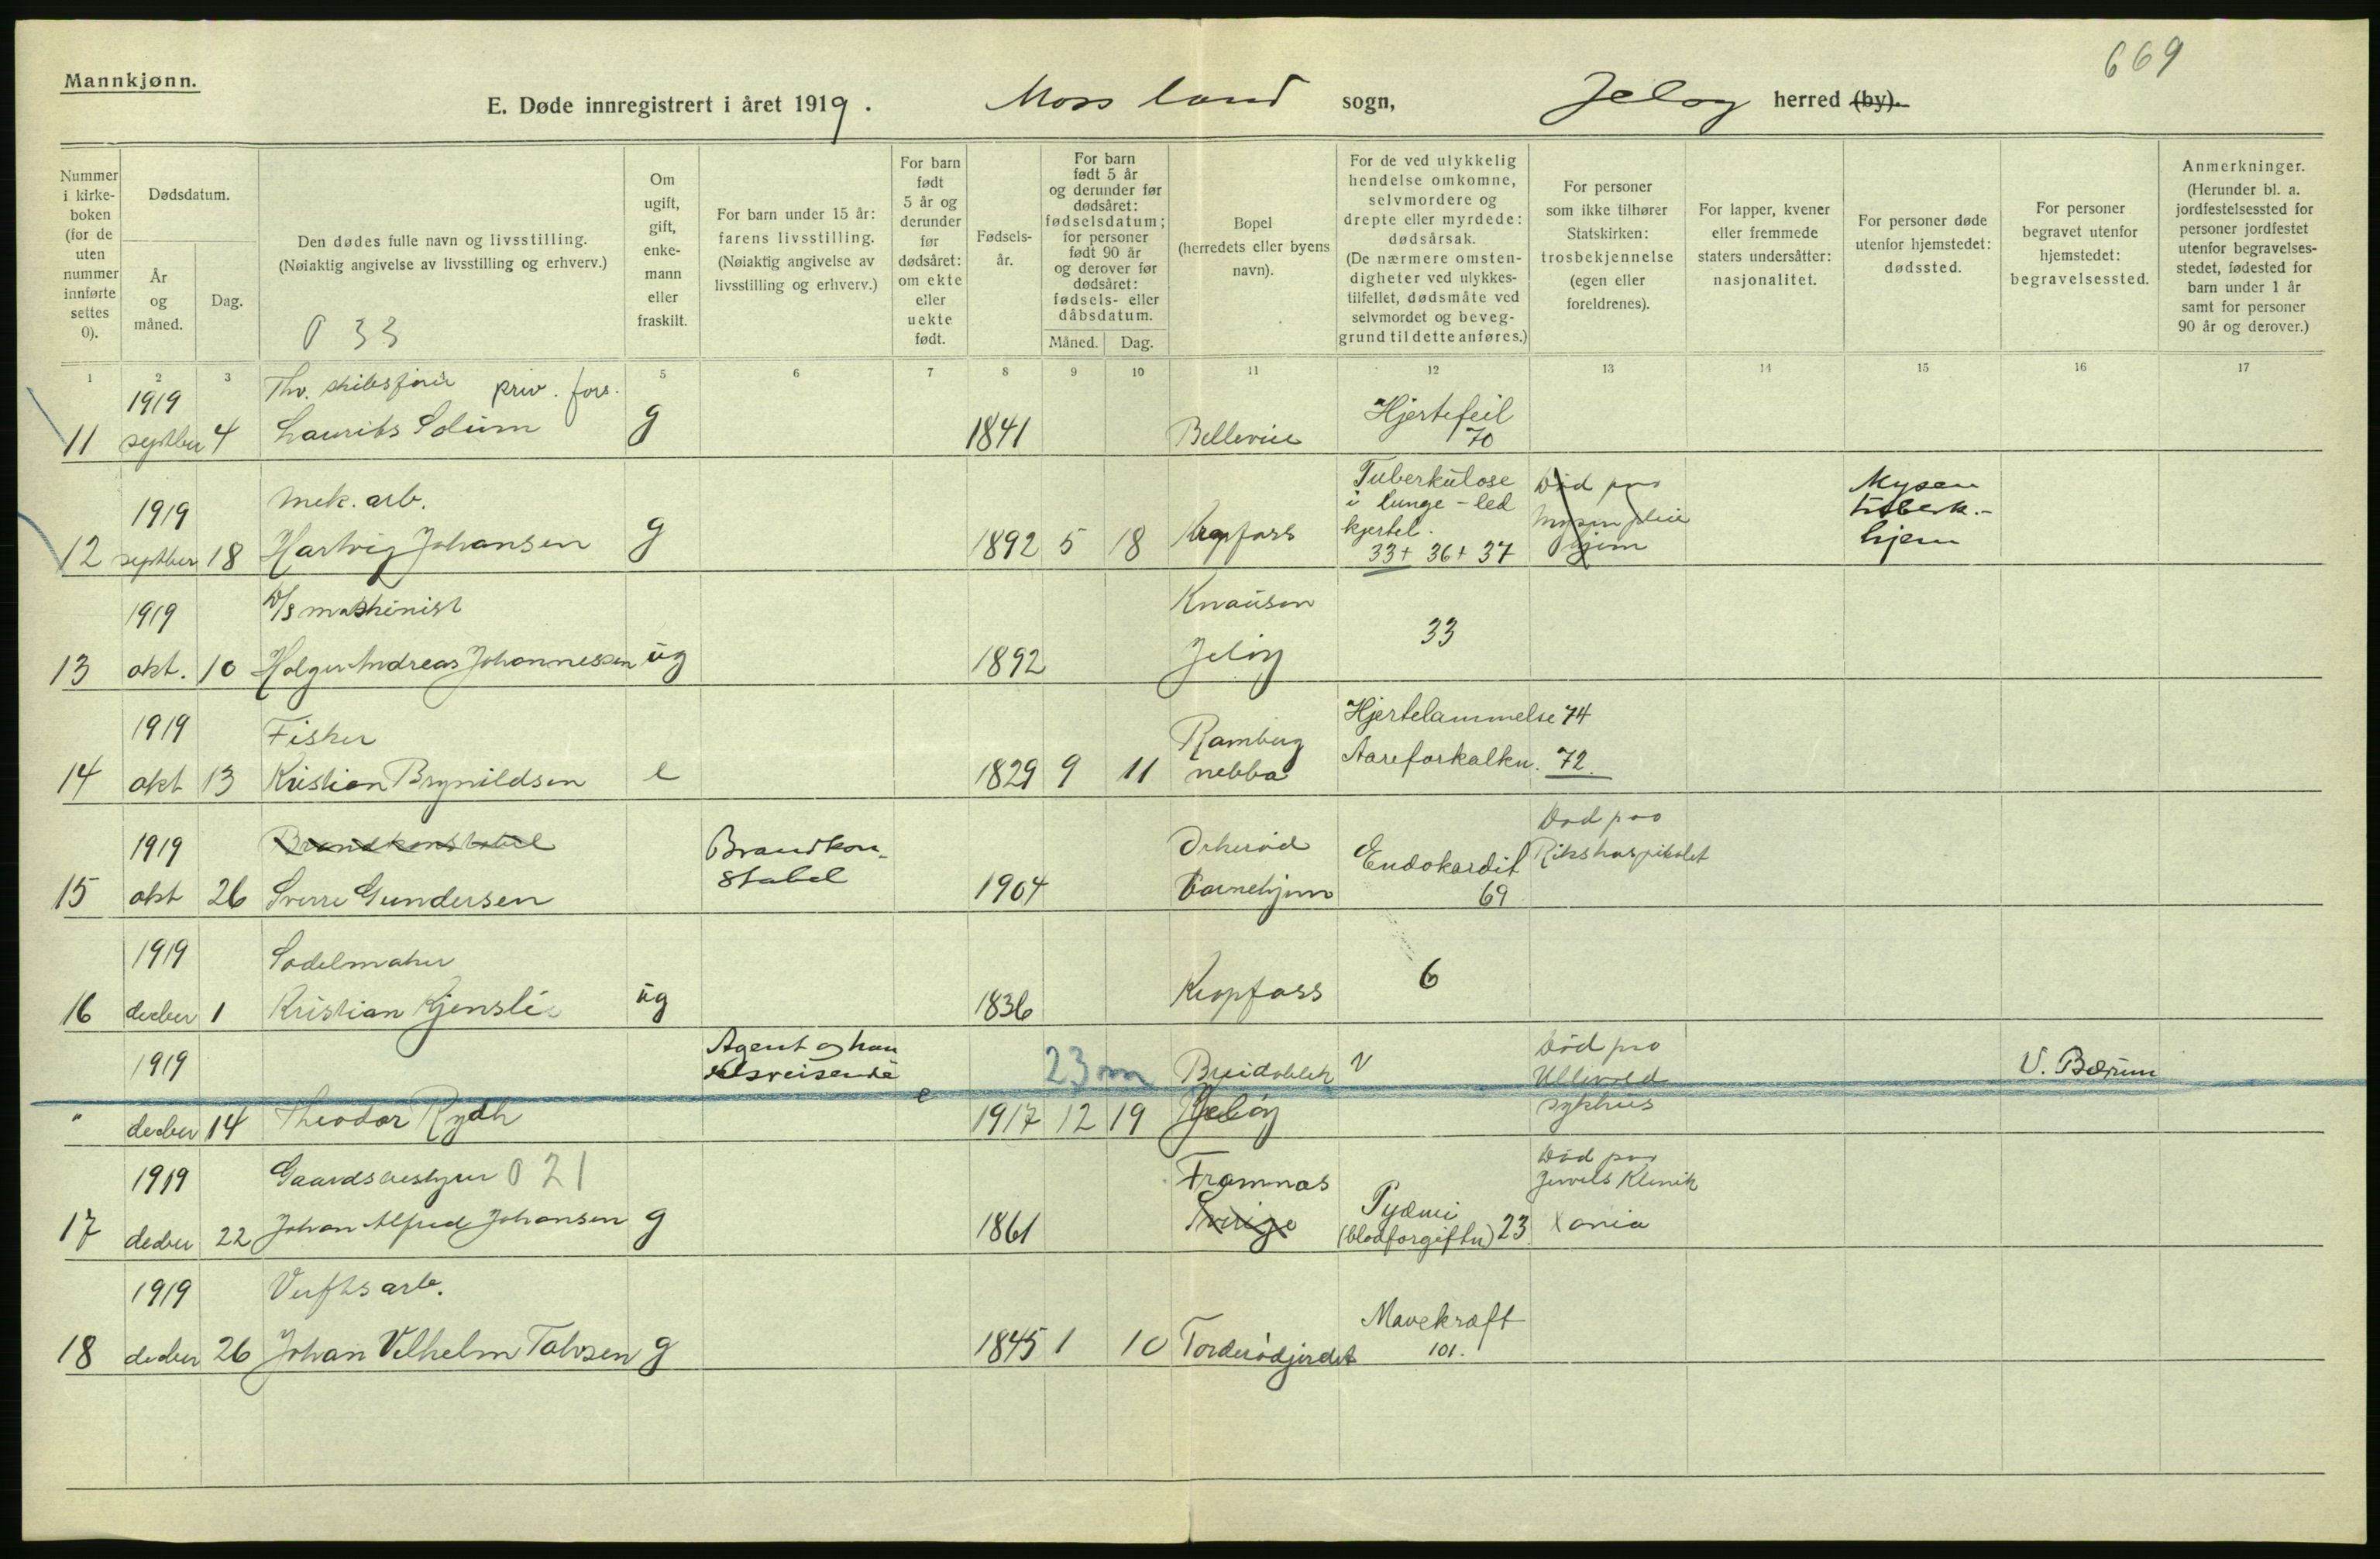 669
Mannkjønn.
E. Døde innregistrert i året 1919. Moss land sogn, Jeløy herred (by).
Nummer i kirke-boken (for de uten nummer innførte settes 0).
Dødsdatum.
År og måned.
Dag.
Den dødes fulle navn og livsstilling.
(Nøiaktig angivelse av livsstilling og erhverv.)
0 33
Om ugift, gift, enke-mann eller fraskilt.
For barn under 15 år: farens livsstilling. (Nøiaktig angivelse av livsstilling og erhverv.)
For barn født 5 år og derunder før dødsåret: om ekte eller uekte født.
Fødsels-år.
For barn født 5 år og derunder før dødsåret: fødselsdatum; for personer født 90 år og derover før dødsåret: fødsels- eller dåbsdatum.
Måned.
Dag.
Bopel (herredets eller byens navn).
For de ved ulykkelig hendelse omkomne, selvmordere og drepte eller myrdede: dødsårsak. (De nærmere omsten-digheter ved ulykkes-tilfellet, dødsmåte ved selvmordet og beveg-grund til dette anføres.)
For personer som ikke tilhører Statskirken: trosbekjennelse (egen eller foreldrenes).
For lapper, kvener eller fremmede staters undersåtter: nasjonalitet.
For personer døde utenfor hjemstedet: dødssted.
For personer begravet utenfor hjemstedet: begravelsessted.
Anmerkninger. (Herunder bl. a. jordfestelsessted for personer jordfestet utenfor begravelses-stedet, fødested for barn under 1 år samt for personer 90 år og derover.)
1 2 3 5 6 7 8 9 10 11 12 13 14 15 16 17
1919 Thv. skibsfører priv. fors. Hjertefeil
11 septber 4 Laurits Solum g 1841 Bellevue 70
1919 Mek. arb. Tuberkulose i lunge - led kjertel. Død paa Mysen pleie hjem Mysen tuberk.- hjem
12 septber 18 Hartvig Johansen g 1892 5 18 Krapfoss 33+ 36+ 37
1919 D/S maskinist Knausen 33
13 okt. 10 Holger Andreas Johannessen ug 1892 Jeløy
1919 Fisker Ramberg Hjertelammelse 74
14 okt 13 Kristian Brynildsen e 1829 9 11 nebba Aareforkalkn. 72.
1919 Brandkonstabel Brandkon- stabel Orkerød Endokardit Død paa Rikshospitalet
15 okt 26 Sverre Gundersen 1904 Barnehjem 69
1919 Sadelmaker 6
16 decber 1 Kristian Kjenslie ug 1836 Kropfoss
1919 Agent og han delsreisende 23 m Breidablik v Død paa Ullevold sykhus V. Bærum
" decber 14 Theodor Rydh e 1917 12 19 Jeløy
1919 Gaardsbestyrer 0 21 Framnas Pydmi Død paa Jervels Klinik
17 decber 22 Johan Alfred Johansen g 1861 Sverige (blodforgiftn) 23. Xania
1919 Verftsarb. Mavekræft
18 decber 26 Johan Vilhelm Tolvsen g 1845 1 10 Torderødjordet 101.